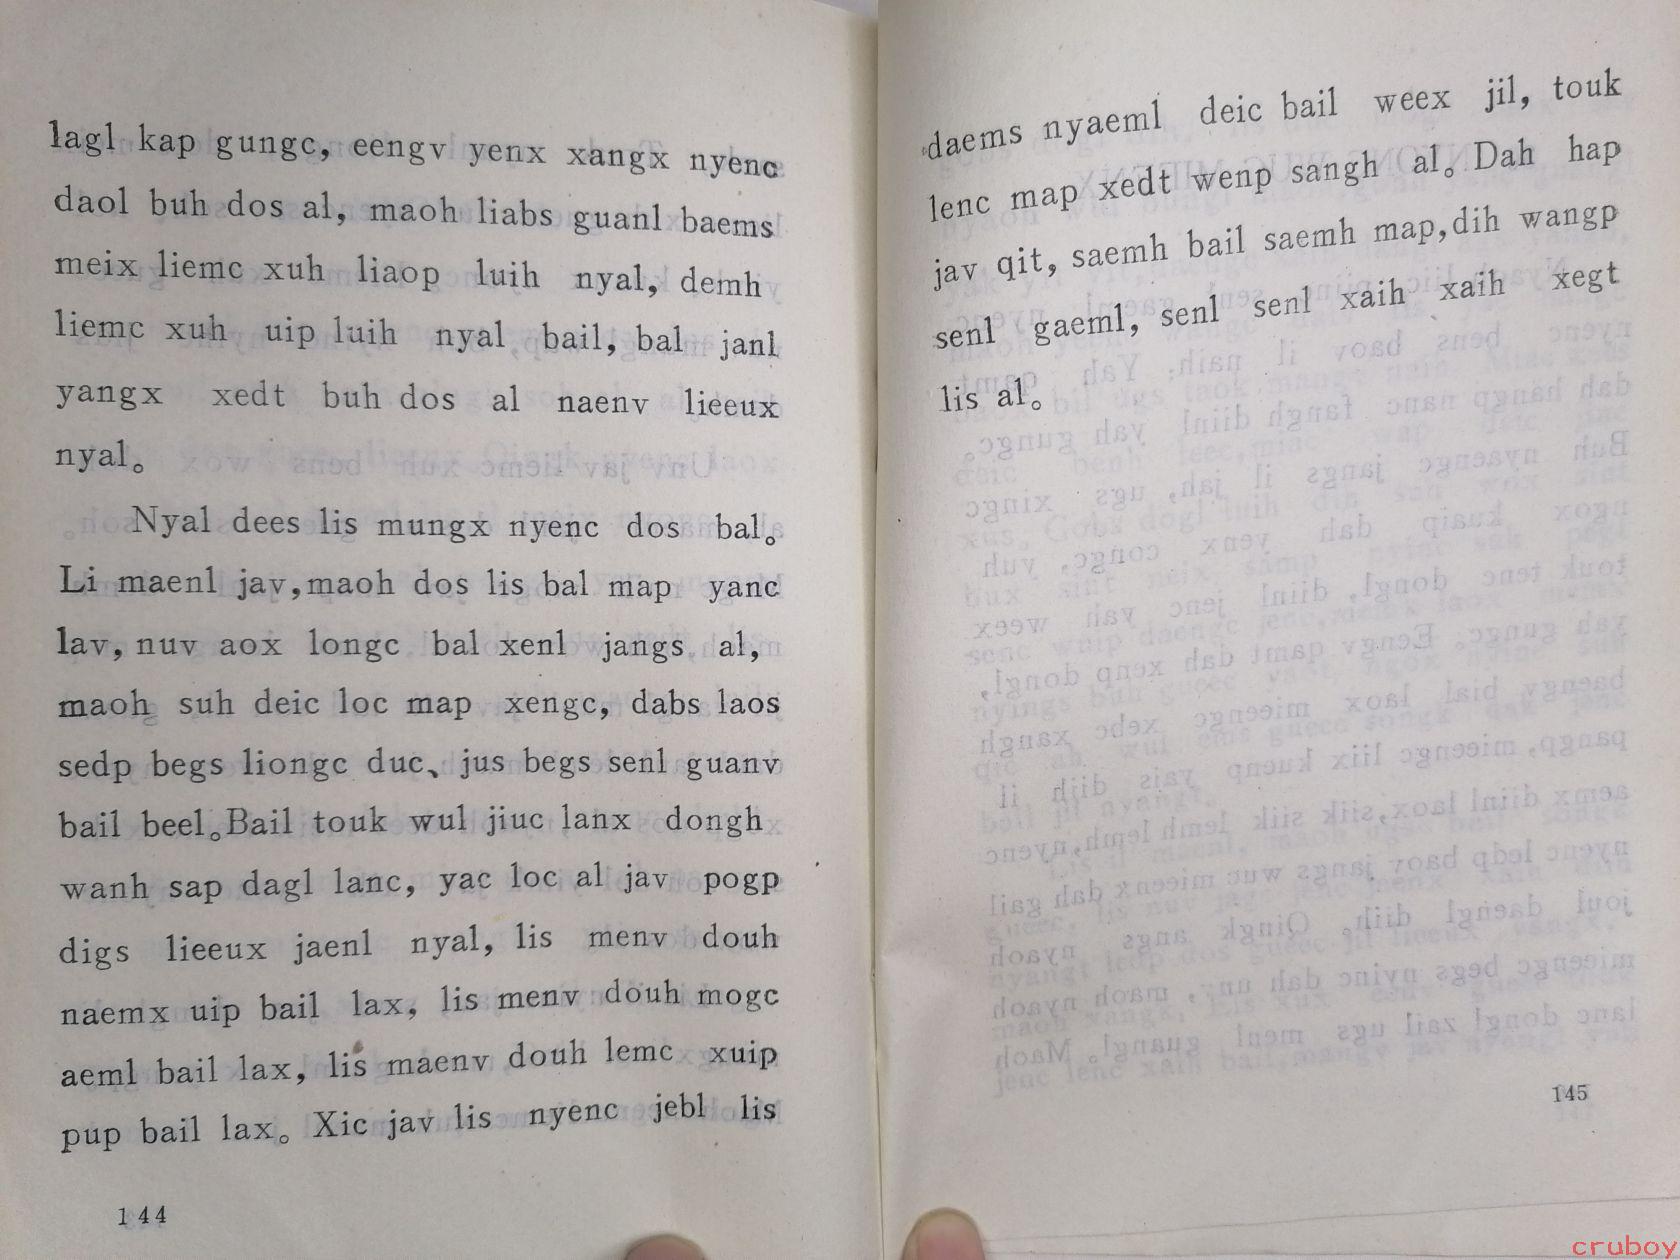 lagl kap gungc, eengv yenx xangx nyenc
daol buh dos al, maoh liabs guanl baems
meix liemc xuh liaop luih nyal, demh
liemc xuh uip luih nyal bail, bal janl
yangx xedt buh dos al naenv lieeux
nyal。
Nyal dees lis mungx nyenc dos bal。
Li maenl jav, maoh dos lis bal map yanc
lav, nuv aox longc bal xenl jangs al,
maoh suh deic loc map xengc, dabs laos
sedp begs liongc duc、jus begs senl guanv
bail beel。Bail touk wul jiuc lanx dongh
wanh sap dagl lanc, yac loc al jav pogp
digs lieeux jaenl nyal, lis menv douh
naemx uip bail lax, lis menv douh mogc
aeml bail lax, lis maenv douh lemc xuip
pup bail lax。Xic jav lis nyenc jebl lis
144
daems nyaeml deic bail weex jil, touk
lenc map xedt wenp sangh al。Dah hap
jav qit, saemh bail saemh map, dih wangp
senl gaeml, senl senl xaih xaih xegt
lis al。
145
cruboy